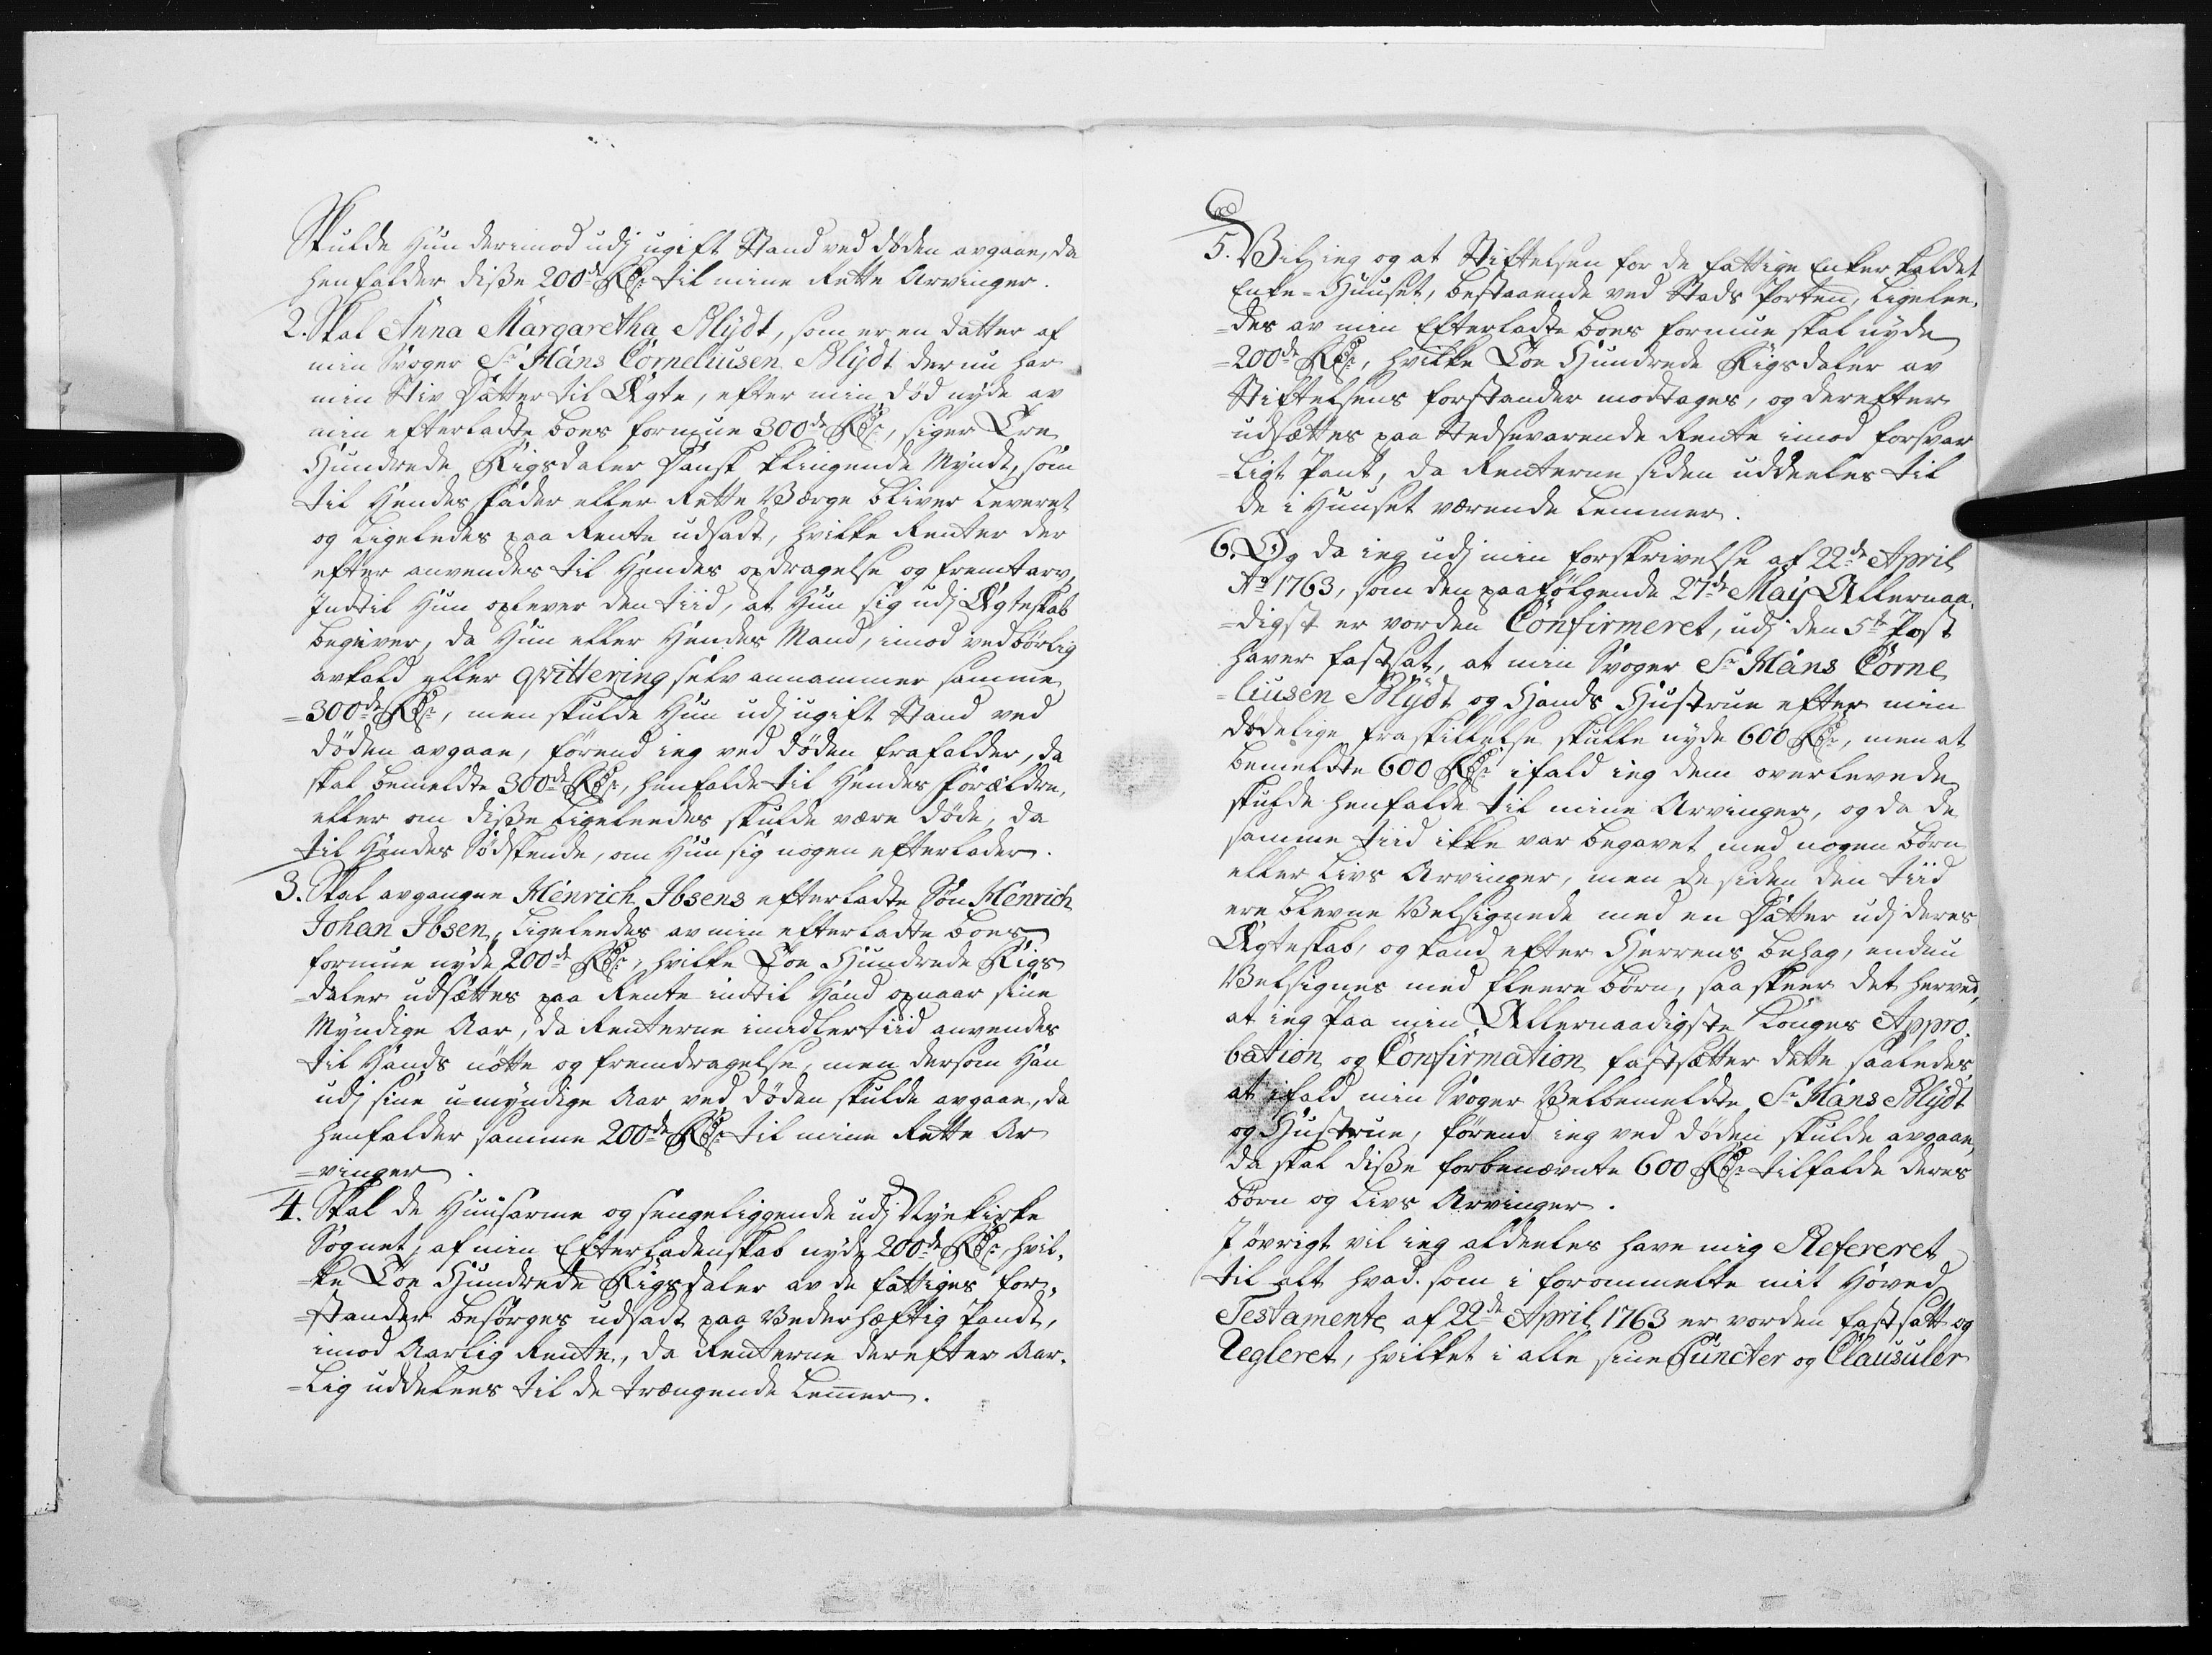 Skulde Hun derimod udj ugift Stand ved døden avgaae, da
henfalder diße 200de Rdr til mine Rette Arvinger.
2. Skal Anna Margaretha Blydt, som er en datter af
min Svoger Sr Hans Corneliusen Blydt der nu har
min Stiv datter til Ægte, efter min død nyde av
min efterladte boes formue 300de Rdr, siger Tre
Hundrede Rigsdaler Dansk klingende Myndt, som
til Hendes fader eller Rette Værge bliver leveret
og ligeledes paa Rente udsadt, hvilke Renter der
efter anvendes til Hendes opdragelse og fremtarv,
Indtil Hun oplever den tiid, at Hun sig udj Ægteskab
begiver, da Hun eller Hendes Mand, imod vedbørlig
avkald eller qvittering selv annammer samme
=300de Rdr, men skulde Hun udj ugift Stand ved
døden avgaae, førend ieg ved døden frafalder, da
skal bemeldte 300de Rdr, henfalde til Hendes forældre,
eller om diße ligeleedes skulde være døde, da
til Hendes Södskende, om Hun sig nogen efterlader.
3. Skal avgangne Henrich Ibsens efterladte Søn Henrich
Johan Ibsen, ligeleedes av min efterladte boes
formue nyde 200de Rdr, hvilke Toe Hundrede Rigs
=daler udsættes paa Rente indtil Hand opnaar sine
Myndige Aar, da Renterne imidlertiid anvendes
til Hands nötte og fremdragelse, men dersom Han
udj sine u=myndige Aar ved døden skulde avgaae, da
henfalder samme 200de Rdr til mine Rette Ar
=vinger.
4. Skal de Huusarme og sengeliggende udj Nyekirke
Sognet, af min Efterladenskab nyde 200de Rdr, hvil,
=ke Toe Hundrede Rigsdaler av de fattiges for,
=stander besørges udsadt paa Vederhæftig Pandt,
imod Aarlig Rente, da Renterne derefter Aar,
=lig uddeeles til de trængende Lemer.
5. Vil ieg og at Stiftelsen for de fattige Enker kaldet
Enke=Huuset, bestaaende ved Stads Porten, ligelee,
=des av min Efterladte boes formue skal nyde
=200de Rdr, hvilke Toe Hundrede Rigsdaler av
Stiftelsens forstander modtages, og derefter
udsættes paa Stedsevarende Rente imod forsvar
=ligt Pant, da Renterne siden uddeeles til
de i Huuset værende Lemmer.
6. Og da ieg udj min forskrivelse af 22de April
Ao 1763, som den paafølgende 27de Maij Allernaa,
=digst er vorden Confirmeret, udj den 5te Post
haver fastsat, at min Svoger Sr Hans Corne
=liusen Blydt og Hands Hustrue efter min
dødelige fraskillelse skulle nyde 600 Rdr, men at
bemeldte 600 Rdr ifald ieg dem overlevede
skulde henfalde til mine Arvinger, og da de
samme tiid ikke var begavet med nogen børn
eller Livs Arvinger, men de siden den tiid
ere blevne Velsignede med en Datter udj deres
Ægteskab, og kand efter Herrens behag, endnu
Velsignes med fleere børn, saa skeer det herved,
at ieg paa min Allernaadigste Konges Appro,
bation og Confirmation fastsætter dette saaledes,
at ifald min Svoger Velbemeldte Sr Hans Blydt
og Hustrue, førend ieg ved døden skulde avgaae,
da skal diße forbenævnte 600 Rdr tilfalde deres
børn og Livs Arvinger.
I øvrigt vil ieg aldeeles have mig Refereret
til alt hvad som i forommelte mit Hoved
Testamente af 22de April 1763 er vorden fastsatt og
Regleret, hvilket i alle sine Puncter og Clausuler